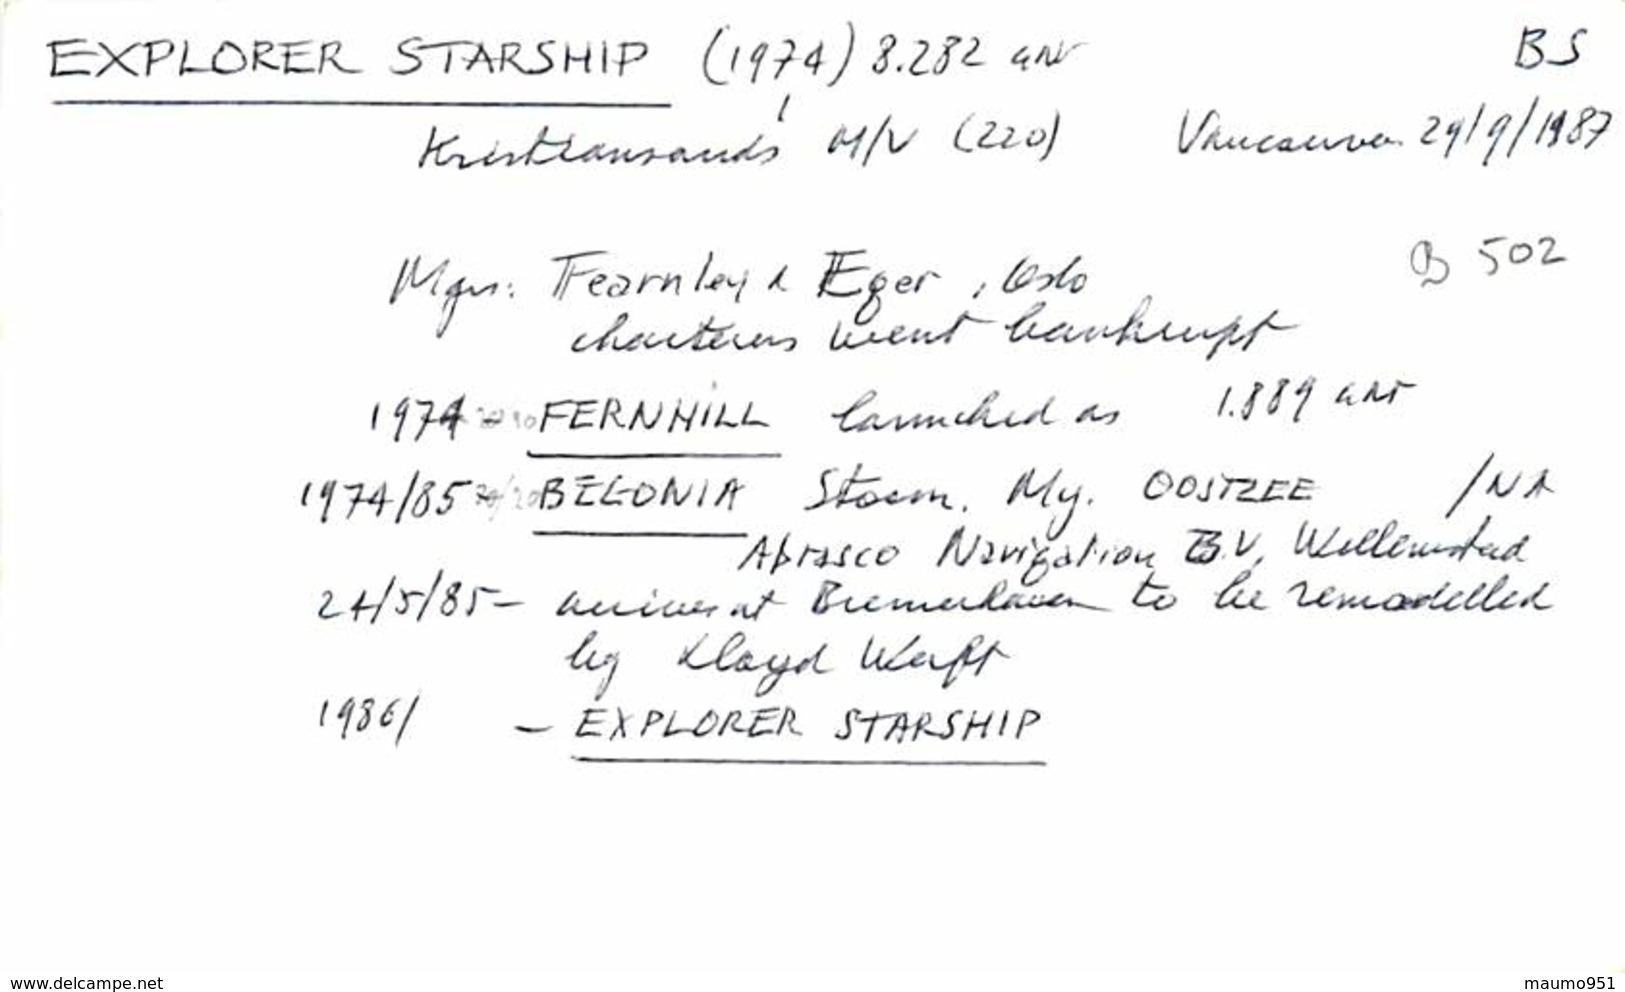 EXPLORER STARSHIP (1974) 8.282 GRT BS
Kristiansands M/V (220) Vancouver 29/9/1987
Mgrs: Fearnley & Eger, Oslo B 502
charterers went bankrupt
1974 - FERNHILL launched as 1.889 GRT
1974/85 BEGONIA Stoom. My. OOSTZEE /NA
Abrasco Navigation B.V, Willemstad
24/5/85 - arrives at Bremerhaven to be remodelled
by Lloyd Werft
1986/ - EXPLORER STARSHIP
www.delcampe.net maumo951